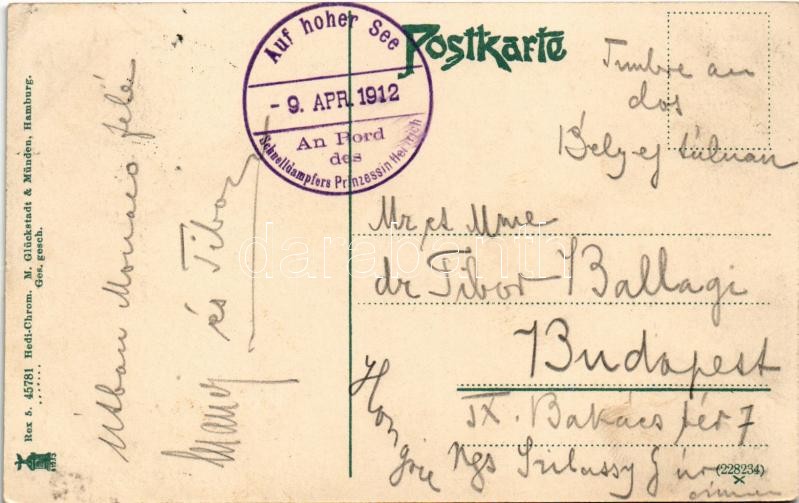 Postkarte
Auf hoher See
- 9. APR. 1912
An Bord
des
Schnelldampfers Prinzessin Heinrich
Timbre au
dos
Bélyeg túlnan
Mr et Mme
dr Tibor Ballagi
Budapest
IX. Bakács tér 7
Hongrie
Ngs Szilassy
(228234)
x
útban Monaco felé
és Tibor
Rex 5. 45781 Hedi-Chrom. M. Glückstadt & Münden, Hamburg.
Ges. gesch.
darabanth